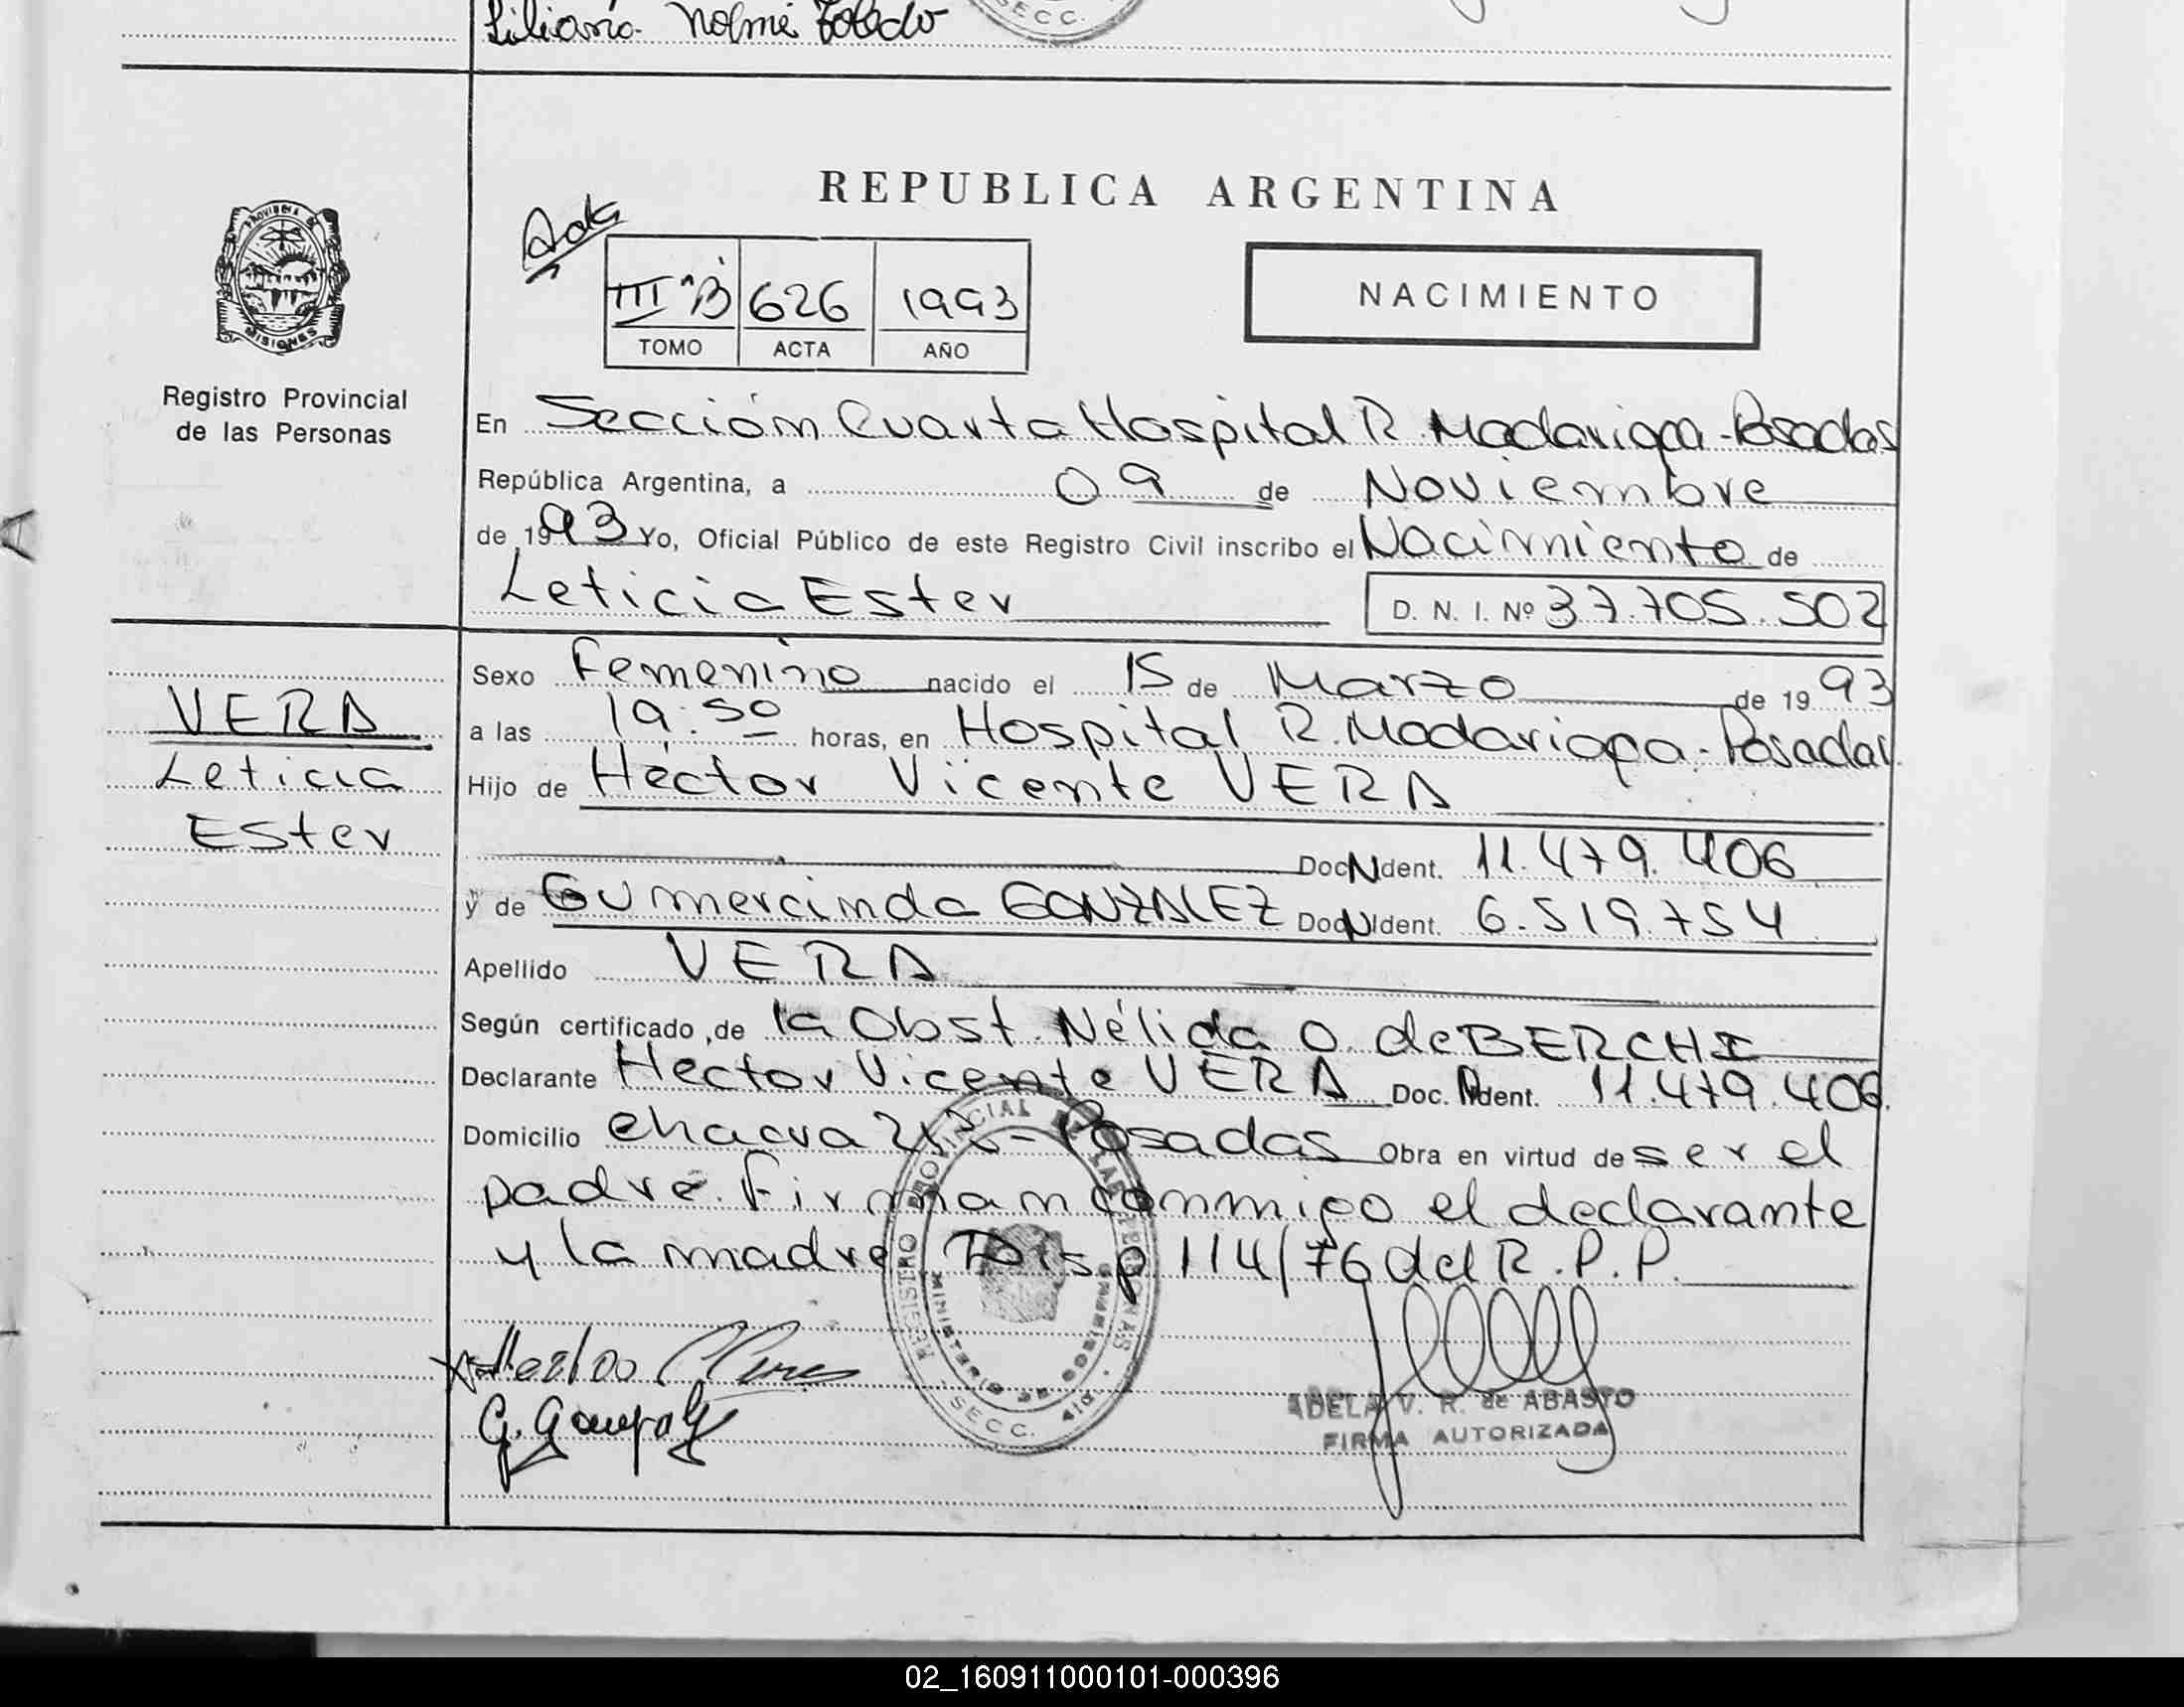 Liliana Nolmi Toledo
SECC.
REPUBLICA ARGENTINA
PROVINCIA DE
MISIONES
Registro Provincial
de las Personas
III "B" 626 1993
TOMO ACTA AÑO
NACIMIENTO
En Sección Cuarta Hospital R. Madariaga - Posadas
República Argentina, a 09 de Noviembre
de 1993 Yo, Oficial Público de este Registro Civil inscribo el Nacimiento de
Leticia Ester D. N. I. Nº 37.705.502
VERA
Leticia
Ester
Sexo Femenino nacido el 15 de Marzo de 1993
a las 19:50 horas, en Hospital R. Madariaga - Posadas
Hijo de Héctor Vicente VERA
Doc N Ident. 11.479.406
y de Gumercinda GONZALEZ Doc N Ident. 6.519.754
Apellido VERA
Según certificado, de la Obst. Nélida O. de BERCHI
Declarante Hector Vicente VERA Doc. N Ident. 11.479.406.
Domicilio Chacra - Posadas Obra en virtud de ser el
padre. Firman conmigo el declarante
y la madre Disp 114/76 del R.P.P.
REGISTRO PROVINCIAL DE LAS PERSONAS
MINISTERIO DE GOBIERNO
SECC. 4ta.
G. Gonzalez
ADELA V. R. de ABASTO
FIRMA AUTORIZADA
02_160911000101-000396